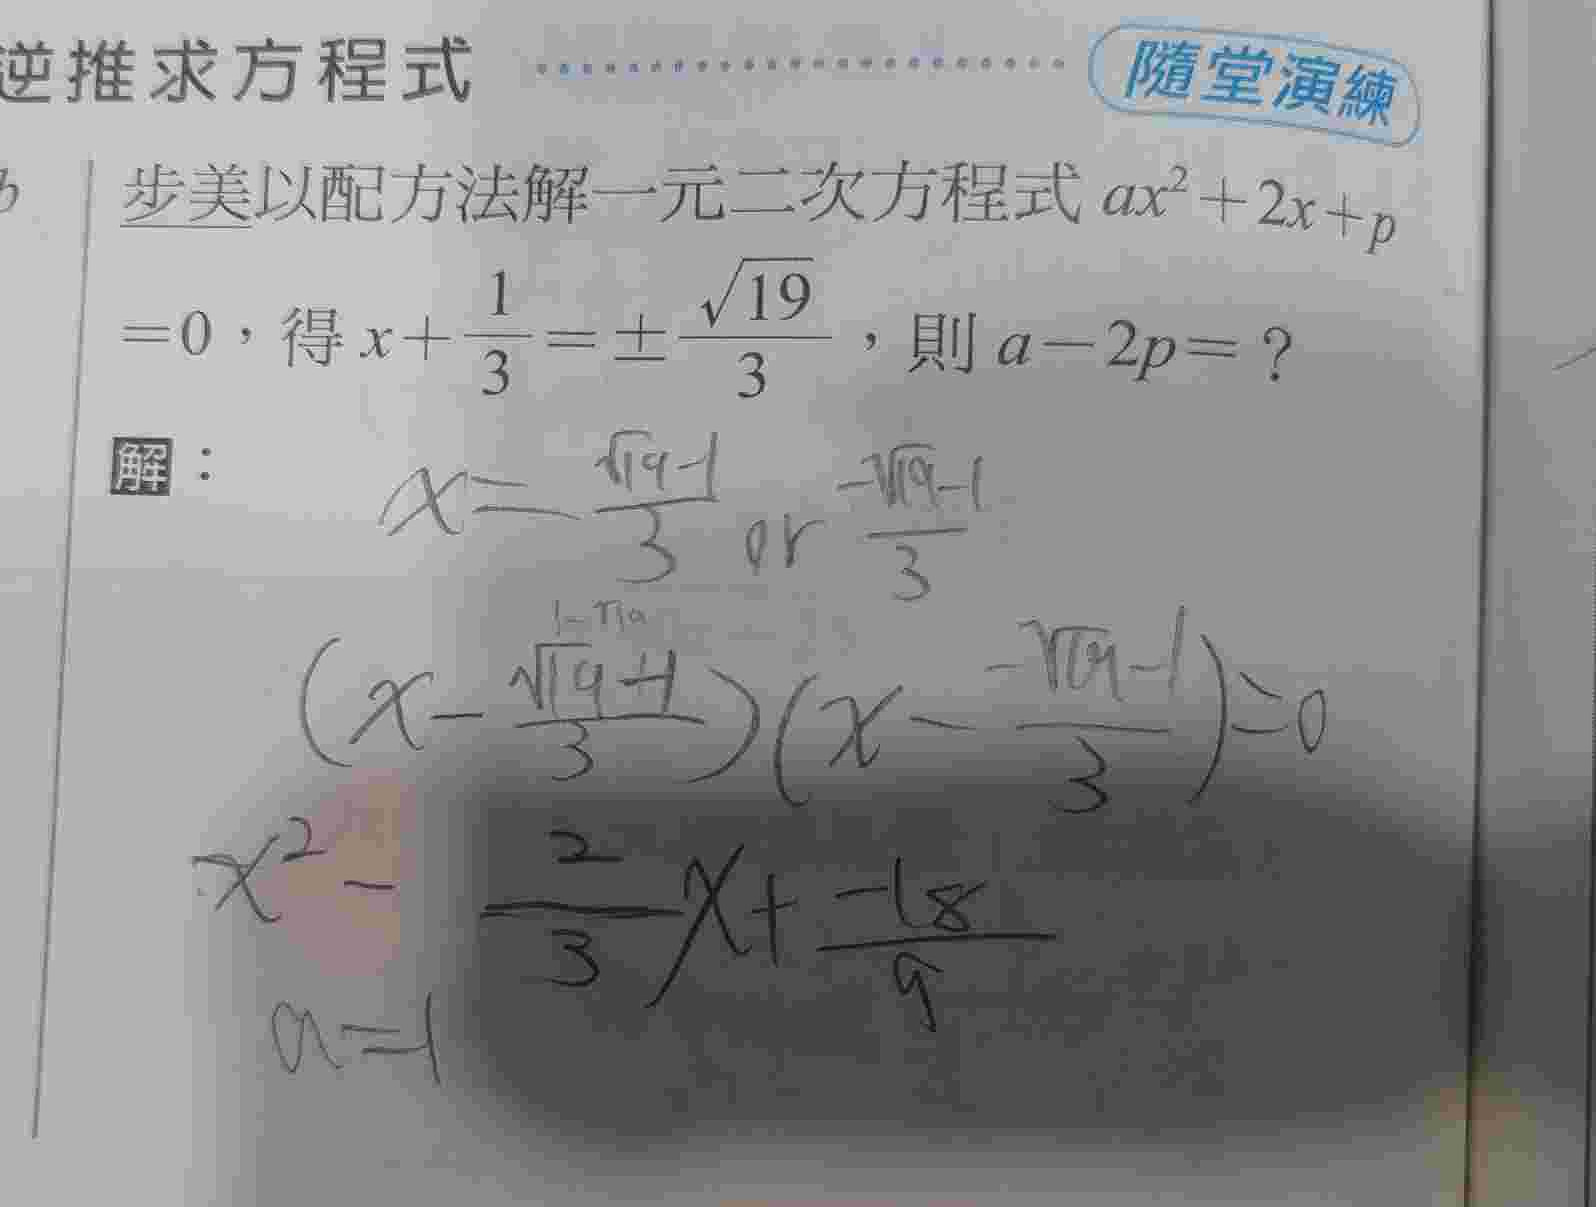 逆推求方程式 隨堂演練
步美以配方法解一元二次方程式 ax²+2x+p
=0，得 x+1/3=±√19/3，則 a－2p=？
解：
x= (√19-1)/3 or (-√19-1)/3
(x- (√19+1)/3)(x- (-√19-1)/3)=0
x² - 2/3 x+ -18/9
a=1